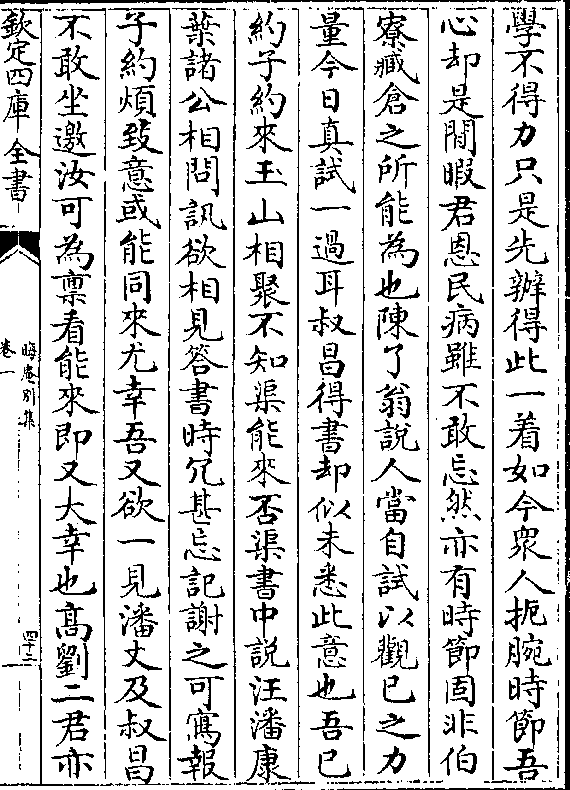 學不得力只是先辦得此一着如今衆人扼腕時節吾
心却是閒暇君恩民病雖不敢忘然亦有時節固非伯
寮臧倉之所能為也陳了翁說人當自試以觀已之力
量今日真試一過耳叔昌得書却似未悉此意也吾已
約子約來玉山相聚不知渠能來否渠書中説汪潘康
葉諸公相問訊欲相見答書時冗甚忘記謝之可寫報
子約煩致意或能同來尤幸吾又欲一見潘丈及叔昌
不敢坐邀汝可為禀看能來即又大幸也髙劉二君亦
欽定四庫全書
晦庵別集
卷一
四十二